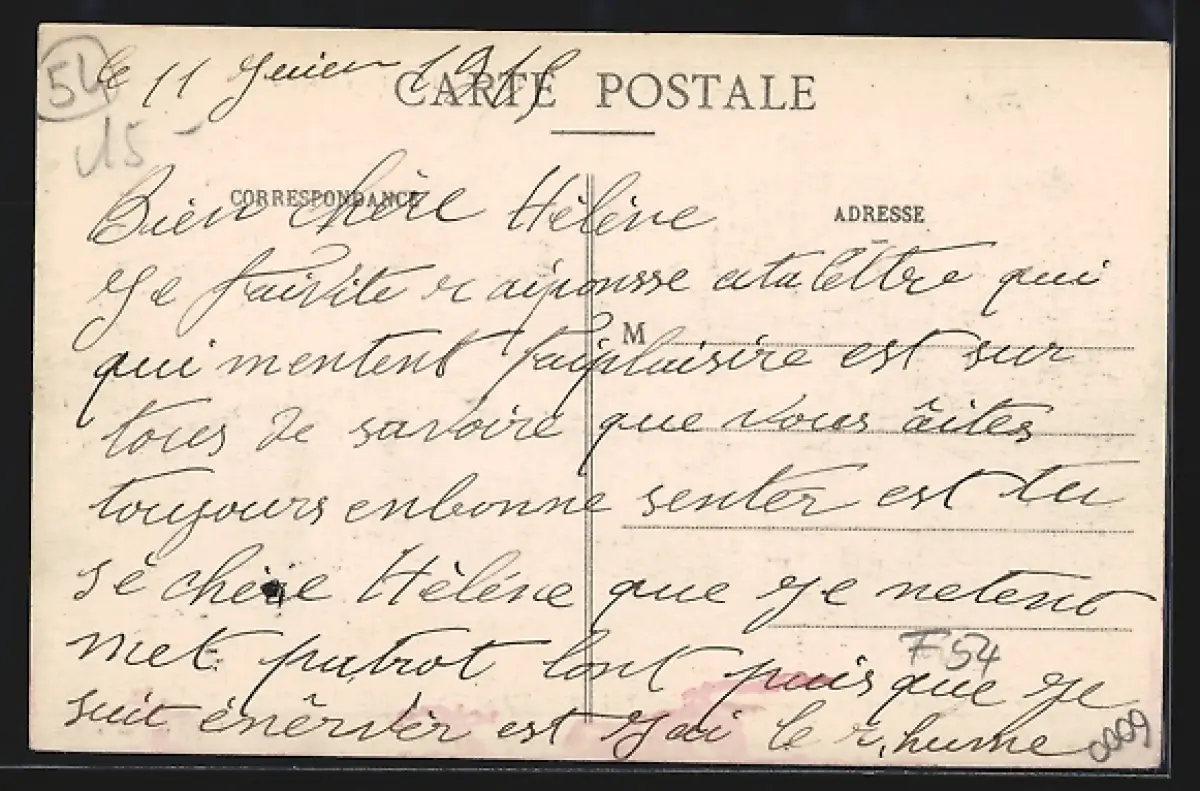 54
le 11 Juier 1915
CARTE POSTALE
15 -
CORRESPONDANCE
ADRESSE
Bien chère Hélène
Je fai vite raiponsse ata lettre qui
M
qui mentent faiplaisire est sur
tous de savoire que vous âites
toujours enbonne senter est tu
sé chère Hélène que je netent
met pa trot lont puis que je
F 54
suit énêrvér est j'ai le rhume
0009